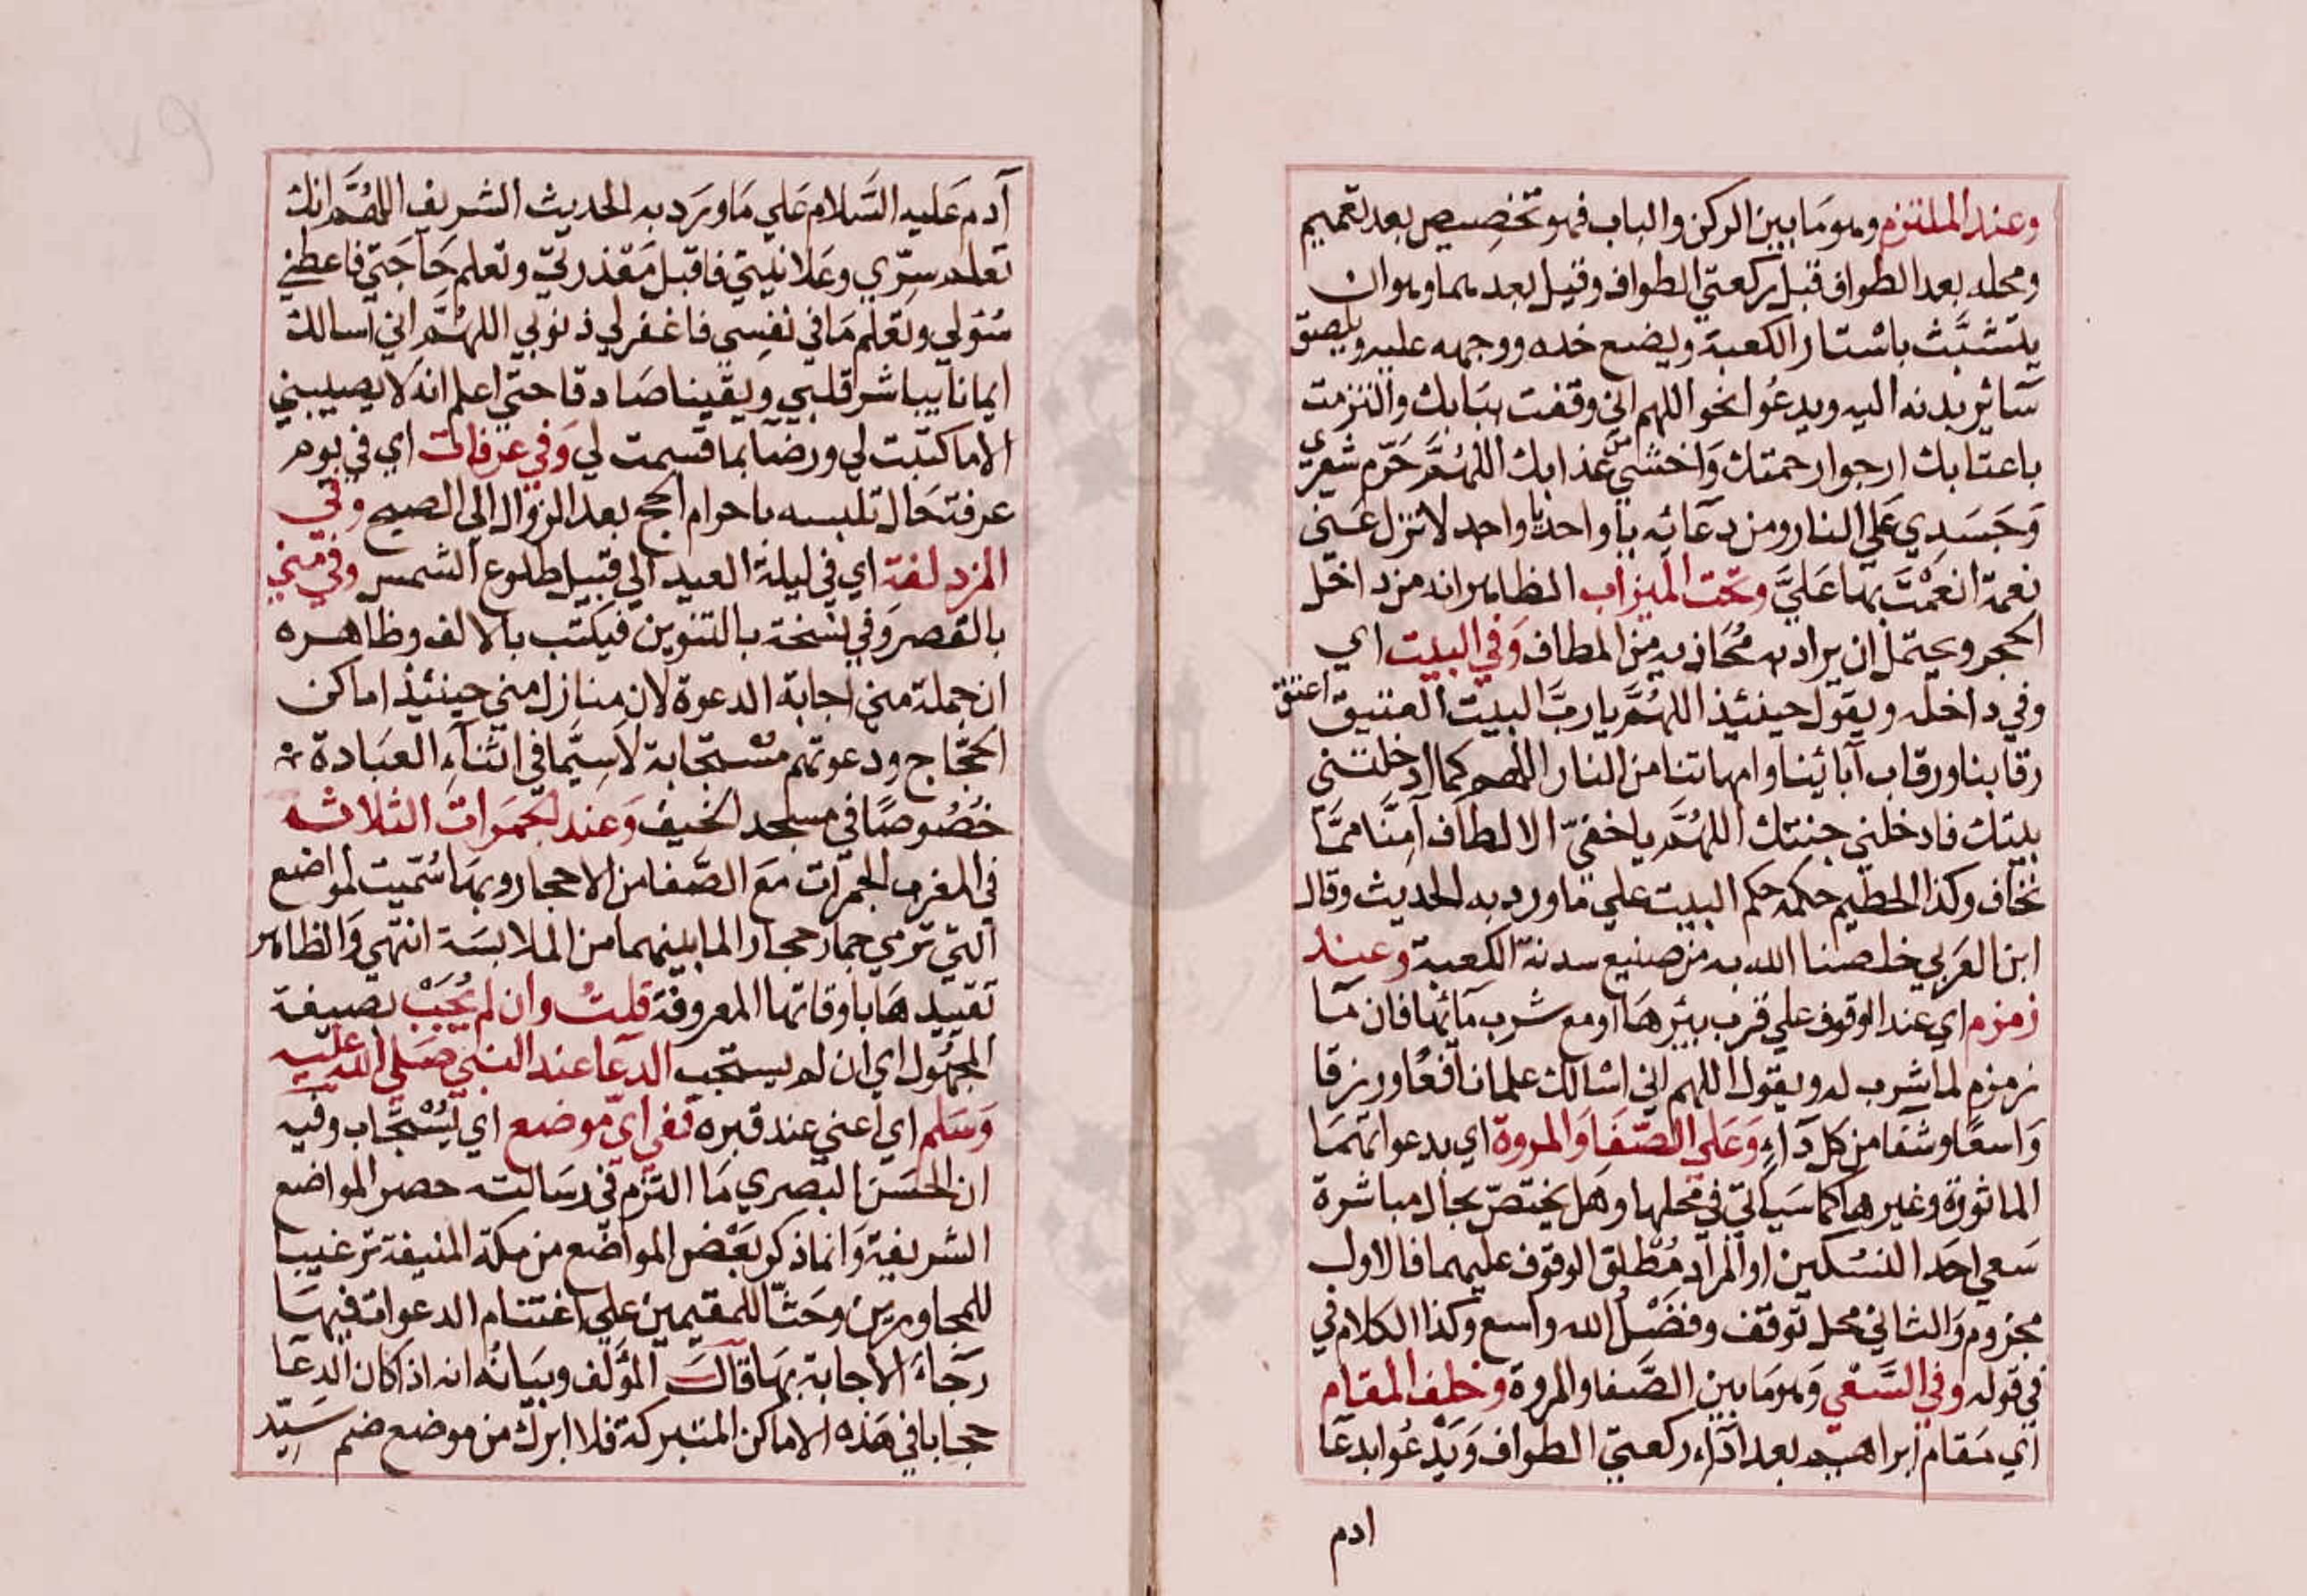 وعند الملتزم وهو ما بين الركن والباب فهو تخصيص بعد تعميم
ومحله بعد الطواف قبل ركعتي الطواف وقيل بعدهما وهو ان
يتشبَّث باستار الكعبة ويضع خده ووجهه عليه ويلصق
سائر بدنه اليه ويدعوا نحو اللهم اني وقفت ببابك والتزمت
باعتابك ارجوا رحمتك واخشي من عذابك اللهُمَّ حَرّم شعري
وَجَسَدِي عَلي النار ومن دعائه يا واحد يا واحد لا تزل عَني
نعمة انعمْتَ بهَا عَليَّ وتحت الميزاب الظاهر انه من داخل
الحجر ويحتمل ان يراد به مُحَاذيه من المطاف وَفي البيت اي
وفي داخله ويقول حينئذ اللهُمَّ يا ربَّ البيت العتيق اعتق
رقابنا ورقاب آبائينا وامهاتنا من النار اللهم كما ادخلتني
بيتك فادخلني جنتك اللهُمَّ يا خفيّ الالطاف آمِنَّا ممَّا
نخاف وكذا الحطيم حكمه حكم البيت علي ما ورد به الحديث وقال
ابن العَربي خلصنا الله به من صنيع سدنة الكعبة وعند
زمزم اي عند الوقوف علي قرب بئرهَا او مع شرب مآئها فان مَا
زمزم لما شرب له ويقول اللهم اني اسالك علما نافعًا ورزقا
وَاسعًا وشفا من كل دَاءٍ وَعَلي الصَّفَا وَالمروة اي بدعواتهمَا
الماثورة وغيرها كما سَياتي في محلها وهَل يختصّ بحال مباشرة
سَعي احَد النسُكين او المراد مُطْلق الوقوف عليهما فالاول
مجزوم وَالثاني محل توقف وفضْلُ الله واسع وكذا الكلام في
في قوله وفي السَّعْي وَهو مَا بين الصَّفا والمروة وخلف المقام
اي مَقام ابراهيم بعد ادَاء ركعتي الطواف وَيَدْعُوا بدعَا
ادم
آدم عَليه السَّلام عَلي مَا ورَد به الحديث الشريف اللهُمَّ انك
تعلم سِرّي وعَلانيتي فاقبل مَعْذرتي وتعلم حَاجَتي فاعطني
سُئولي وتعْلم مَا في نفِسي فاغفرلي ذنوبي اللهُمَّ اني اسالك
ايمانا يباشر قلبي ويقينا صَادقا حتي اعلم انه لا يصيبني
الا ما كتبت لي ورضًا بما قسمت لي وَفي عرفات اي في يوم
عرفة حَال تلبسه باحرام الحج بعد الزوال الي الصبح وفي
المزدلفة اي في ليلة العيد الي قبيل طلوع الشمس وفي مني
بالقصر وَفي نسْخة بالتنوين فيكتب بالالف وظاهره
ان جملة مني اجابة الدعوة لان منازل مني حينئذ اماكن
الحجّاج ودعوتهم مسْتجابة لَاسيَّما في اثنآءِ العبَادة
خصُوصًا في مسجد الخيف وَعند الجمَرات الثلاثه
في المغرب الجمرَات مَعَ الصَّفا من الاحجار وبهَا سُمّيت لمواضع
التي ترمي جمار حجار لما بينهما من الملابسَة انتهي وَالظاهر
تقييدهَا باوقاتها المعروفة قلتُ وان لم يُجَبْ بصيغة
المجهُول اي ان لم يستجب الدعَا عند النبي صَلي الله عليه
وَسَلم اي اعني عند قبره ففي ايّ موضع اي يُسْتجَاب وفيه
ان الحسَن البصري مَا التزم في رسَالته حصر المواضع
الشريفة وَانما ذكر بَعْض المواضع من مكة المنيفة ترغيبا
للمجاورين وحَثّا للمقيمين علي اغتنام الدعوات فيهَا
رَجَاءَ الاجابة بهَا قال المؤلف وبيَانُه انه اذا كان الدعَا
حجابا في هَذه الاماكن المتبركة فلا ابرك من موضع ضم سَيّد